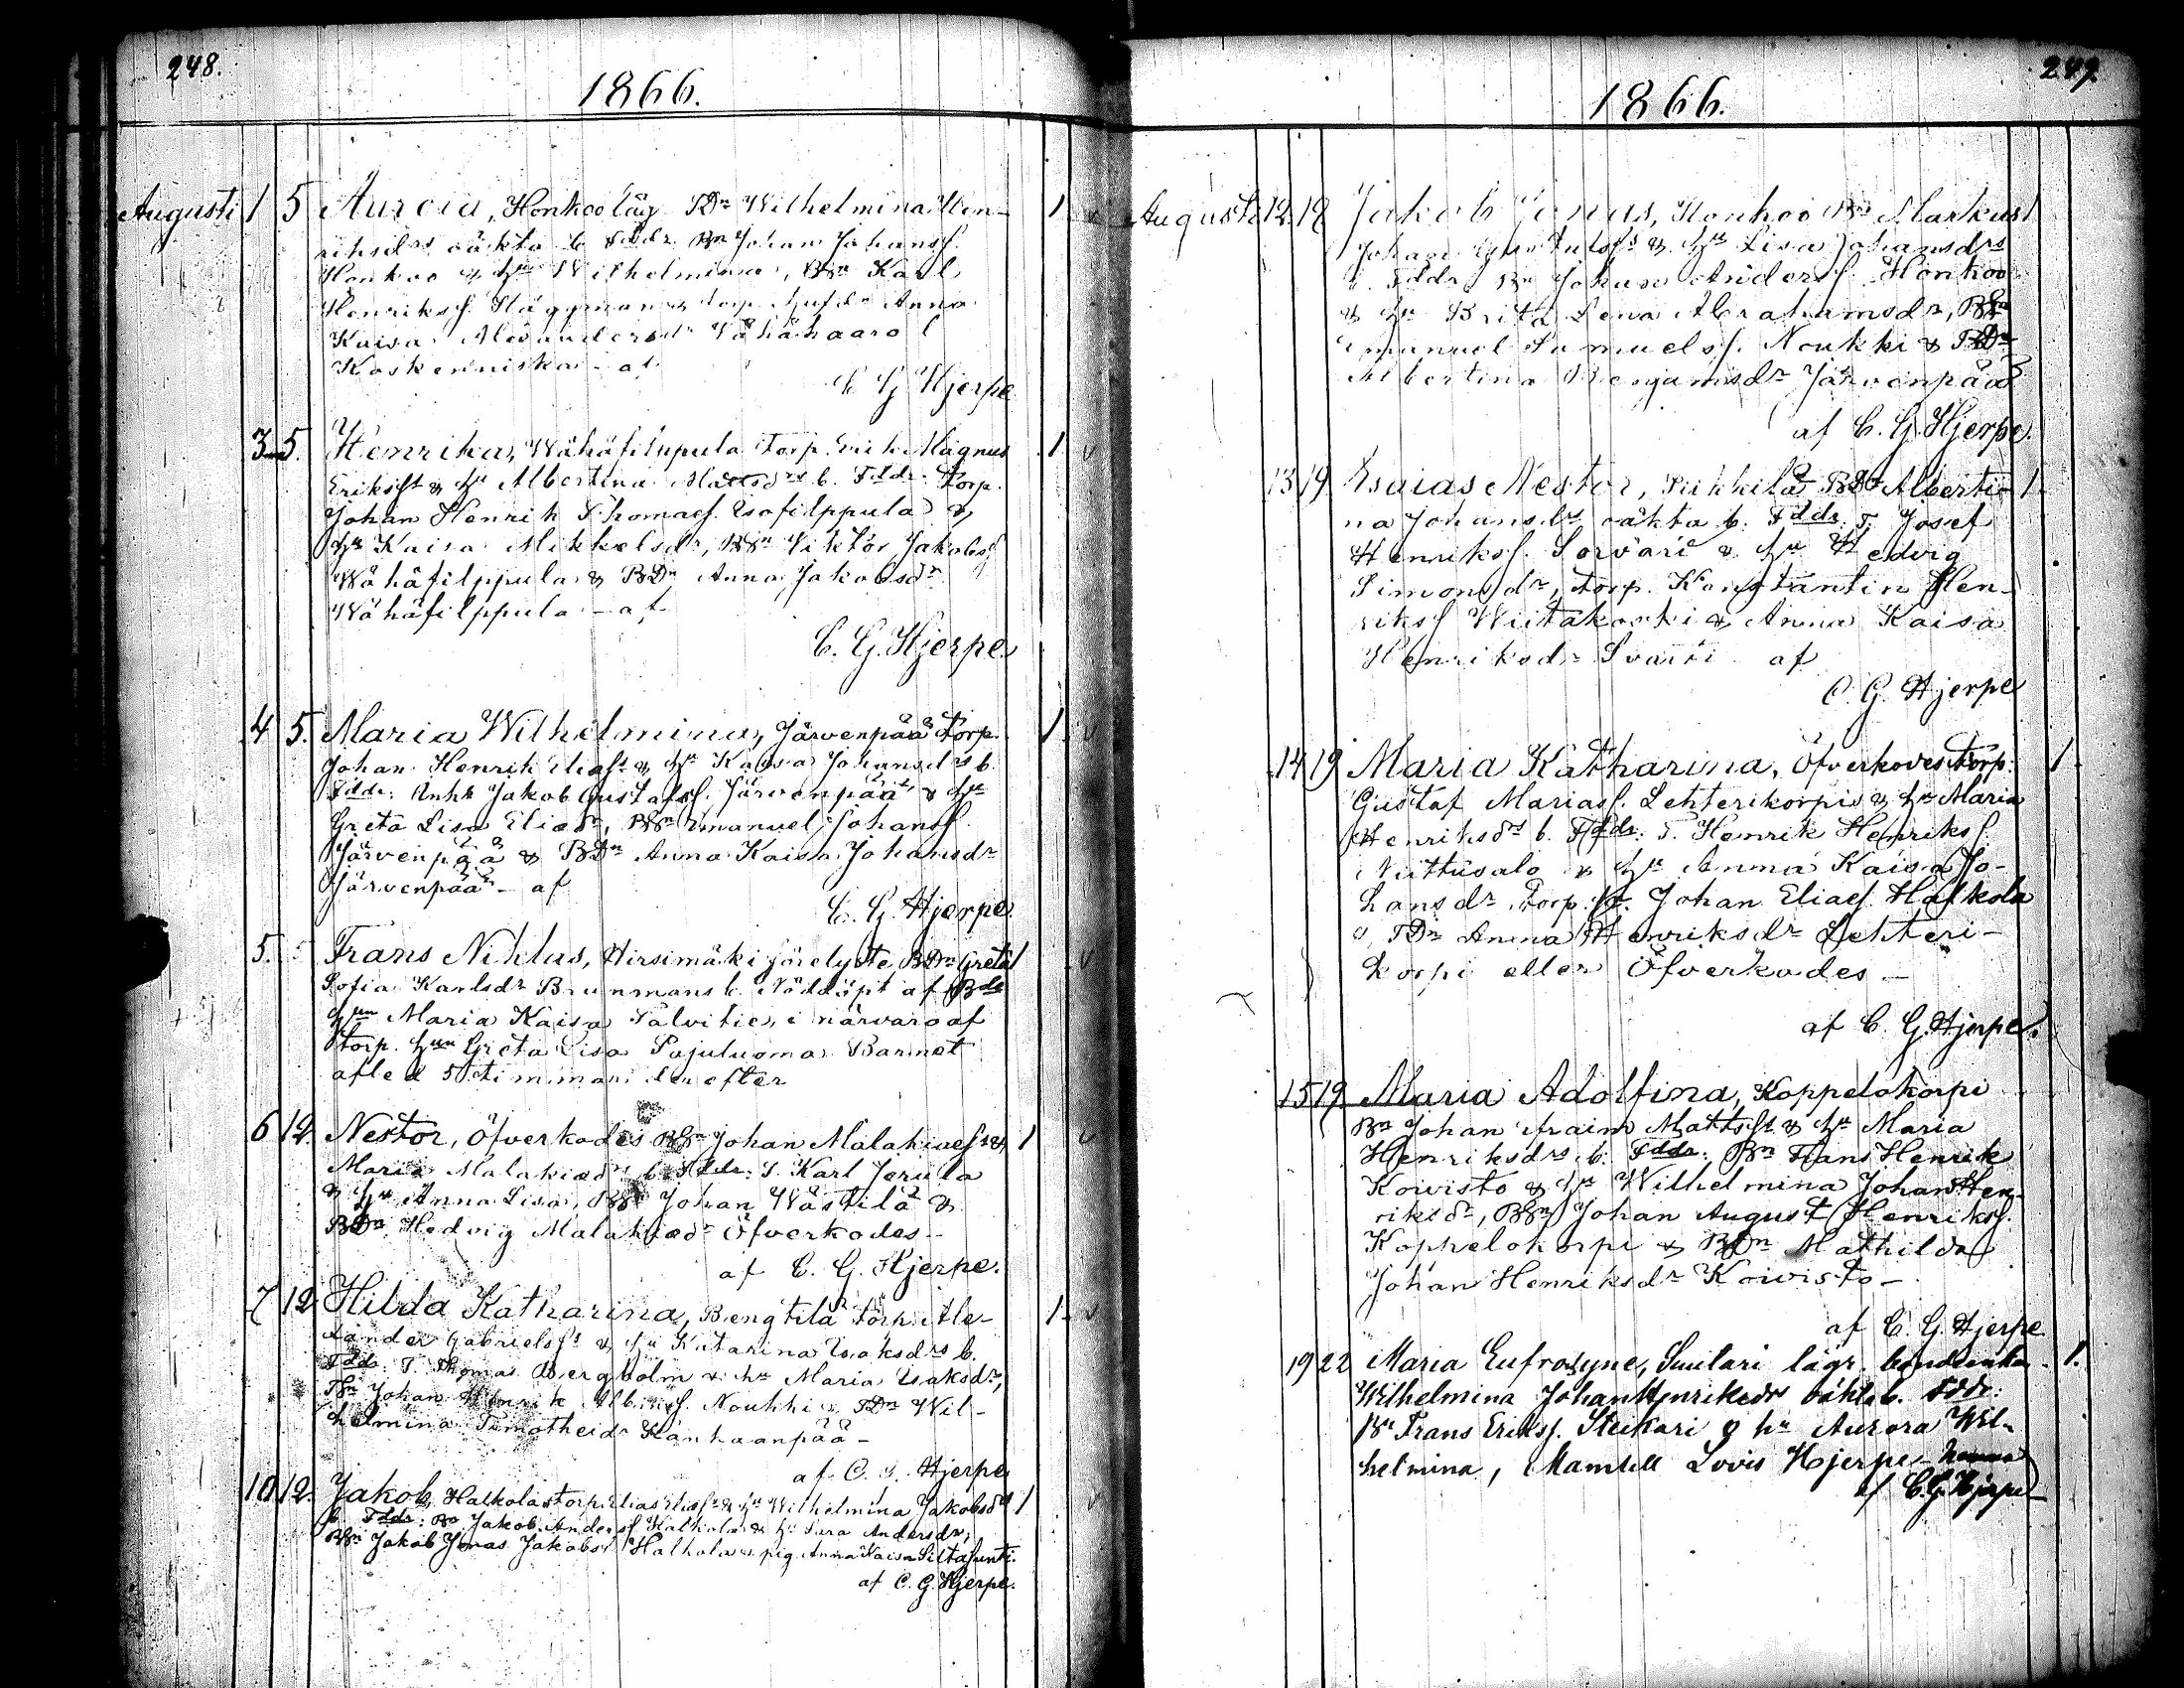 248.
1866.
Augusti 1 5 Aurora, Honkoo läg TDn Wilhelmina Hen- 1
riksdrs oäkta b. Fddr. Bn Johan Johansf.
Honkoo & hu Wilhelmina, BSn Karl
Henriksf. Häggman & torp. hufdr Anna
Kaisa Alexandersdr Vähähaaro l
Koskenniska - af
C G Hjerpe
3 5. Henrika, Wähäfilppula Torp. Erik Magnus 1. v
Eriksfs & hu Albertina Mattsdrs b. Fddr. Torp.
Johan Henrik Thomasf. Isofilppula &
hu Kaisa Mikkelsdr, BSn Viktor Jakobsf
Wähäfilppula & BDn Anna Jakobsdr
Wähäfilppula - af
C. G. Hjerpe
4 5. Maria Wilhelmina, Järvenpää Torp. 1 v
Johan Henrik Eliasfs & hu Kaisa Johansdrs b.
Fddr: Jakob Gustafsf. Järvenpää & hu
Greta Lisa Eliedr, BSn Emanuel Johansf.
Järvenpää & BDn Anna Kaisa Johansdr
Järvenpää - af
C. G. Hjerpe
5. 5 Frans Niklas, Hirsimäki BDn Greta 1 v
Sofia Karlsdr Brunmans b. Nöddöpt af Bde
hun Maria Kaisa Salvitie, i närvaro af
torp. hun Greta Lisa Pajuluoma. Barnet
afled 5 timmar derefter
6 12. Nestor, Öfverkodes BSn Johan Malakiaesfs & 1 v
Maria Malakiaedrs b. Fddr: T. Karl Jerula
& hu Anna Lisa, BSn Johan Wästilä &
BDn Hedvig Malakiaedr Öfverkodes -
af C. G. Hjerpe.
7 12 Hilda Katharina, Bengtilä torp. Ale- 1. v
xander Gabrielsfs & hu Katarina Isaksdrs b.
Fddr: T. Thomas Bergholm & hu Maria Isaksdr,
TSn Johan Henrik Noukki & TDn Wil-
helmina Timotheidr Känkaanpää -
af C. G. Hjerpe
10 12. Jakob, Halkola torp. Elias Eliasfs & hu Wilhelmina Jakobsdrs 1 v
b. Fddr: Bn Jakob Andersf. Halkola & hu Sara Andersdr,
BSn Jakob Jonas Jakobsf Halkola & pig. Anna Kaisa
af C. G. Hjerpe.
249.
1866.
Augusti 12 19 Jakob Jonas, Honkoo BSn Markus 1
Johan Gustafsfs & hu Lisa Johansdrs
b. Fddr. Bn Johan Andersf. Honkoo
& hu Brita Lena Abrahamsdr, BSn
Emanuel Samuelsf. Noukki & TDn
Albertina Benjamsdr Järvenpää
af C. G. Hjerpe.
13 19 Esaias Nestor, Piikkilä BDn Alberti- 1
na Johansdrs oäkta b. Fddr. T. Josef
Henriksf. Sorvari & hu Hedvig
Simonsdr, torp. Konstantin Hen-
riksf Wiitakoski & Anna Kaisa
Henriksdr Svarti af
C. G. Hjerpe
14 19 Maria Katharina, Öfverkodes Torp. 1
Gustaf Mariasf. Lehterikorpis & hu Maria
Henriksdrs b. Fddr: T. Henrik Henriksf.
Niittusalo & hu Anna Kaisa Jo-
hansdr, Torp. Johan Eliasf. Halkola
& TDn Anna Henriksdr Lehteri-
korpi eller Öfverkodes -
af C. G. Hjerpe.
15 19. Maria Adolfina, Koppelokorpi
Bn Johan Efraim Mattsfs & hu Maria
Henriksdrs b. Fddr: Bn Frans Henrik
Koivisto & hu Wilhelmina Johan Hen-
riksdr, BSn Johan August Henriksf.
Koppelokorpi & BDn Mathilda
Johan Henriksdr Koivisto -
af C. G. Hjerpe.
19 22 Maria Eufrosyne, Suitari lägr. bondeenka 1.
Wilhelmina Johan Henriksdrs oäkta b. Fddr:
Bn Frans Eriksf. Steikari & hu Aurora Wil-
helmina, Mamsell Lovis Hjerpe
af C. G. Hjerpe